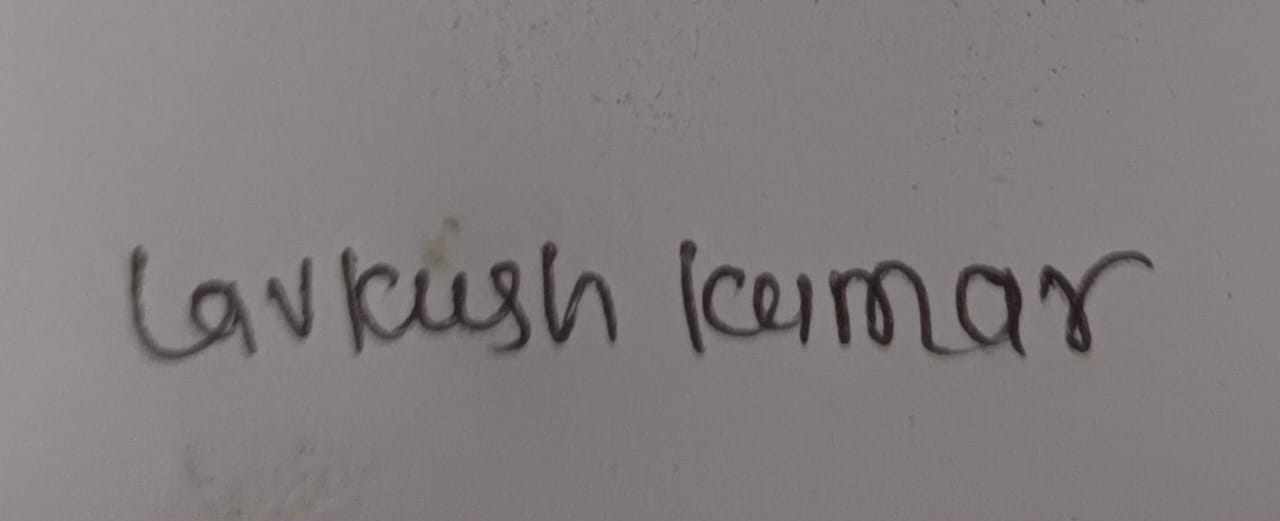 Lavkush kumar